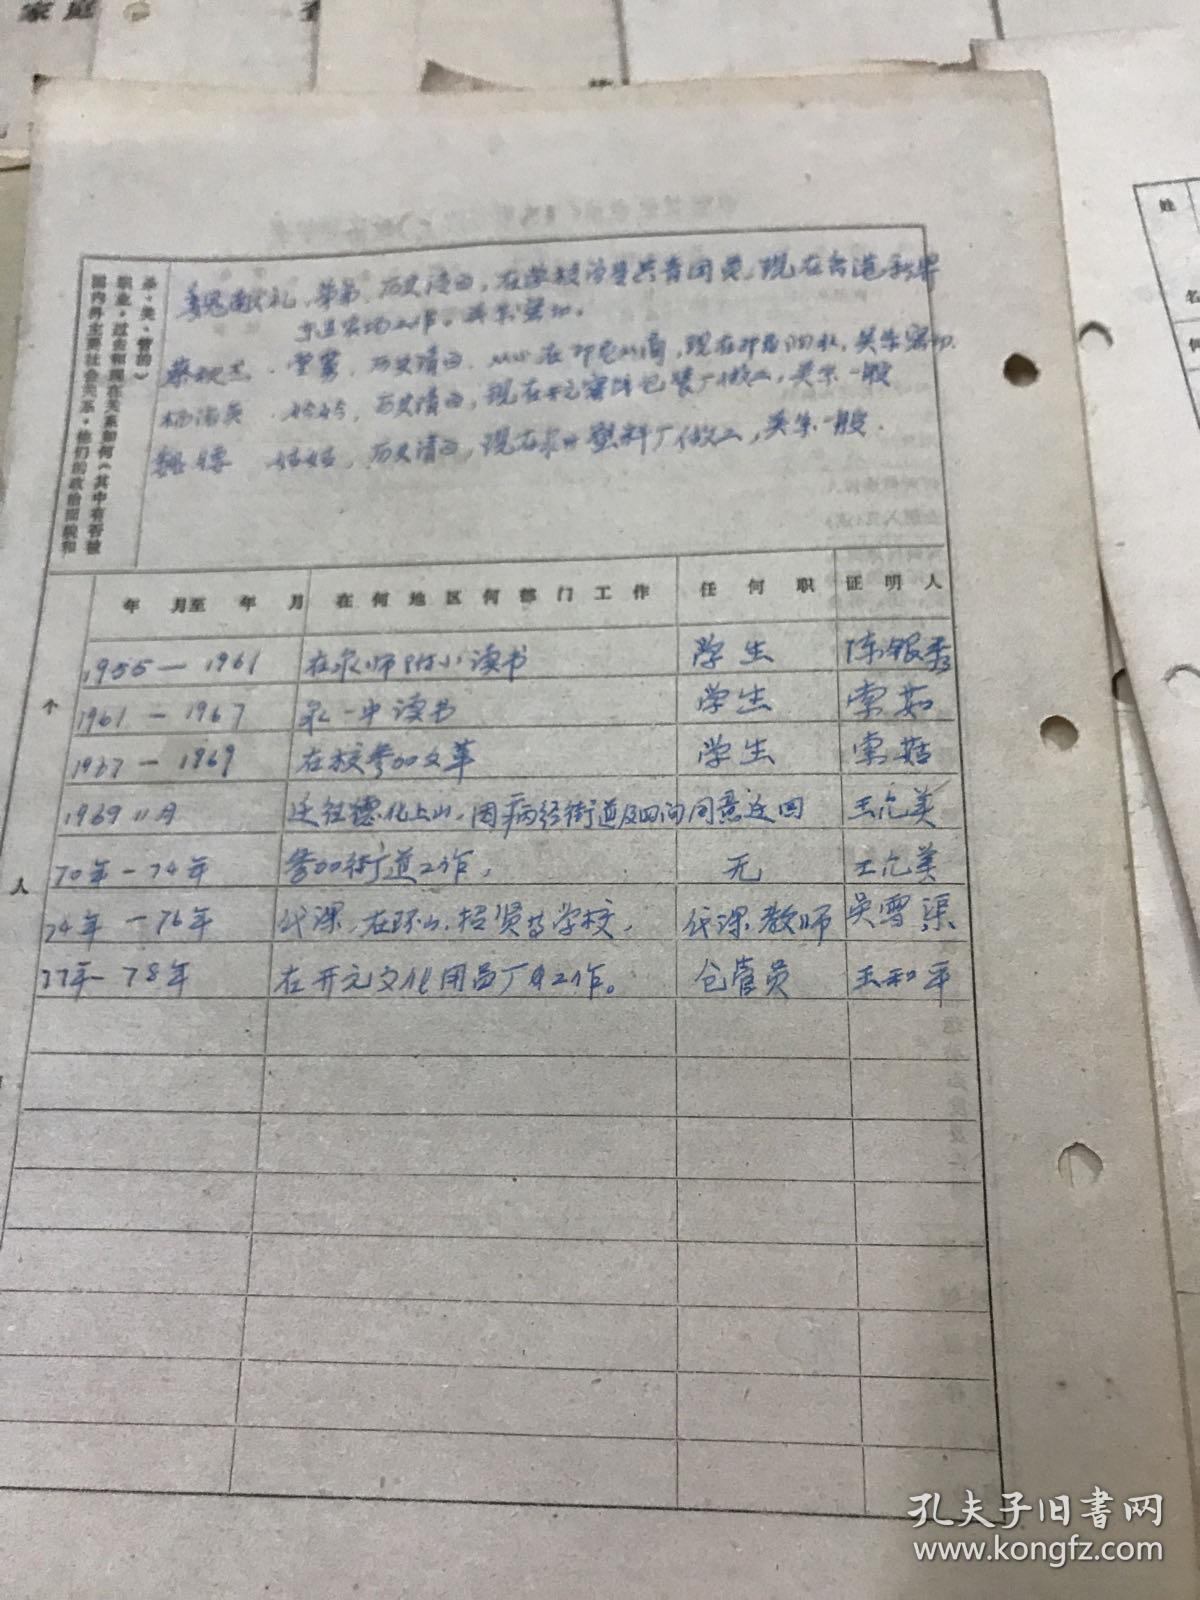 国内外主要社会关系，他们的政治面貌和
职业，过去和现在关系如何（其中有否被
杀、关、管的）
魏献礼，弟弟，历史清白，在学校时是共青团员，现在
农场工作。关系密切。
堂舅，历史清白，从小在印尼，现在印尼，关系密切。
杨治英，婶婶，历史清白，现在开元包装厂做工，关系一般
魏 姑姑，历史清白，现在泉州塑料厂做工，关系一般.
年 月至 年 月 在何地区何部门工作 任何职 证明人
1955—1961 在泉师附小读书 学生 陈银秀
1961—1967 泉一中读书 学生 索茹
1967—1969 在校参加文革 学生 索茹
1969 11月 迁往德化上山，因病经街道及四向同意迁回 王允美
70年—74年 参加街道工作， 无 王允美
74年—76年 代课，在环山、招贤等学校， 代课教师 吴雪渠
77年—78年 在开元文化用品厂工作。 仓管员 王和平
个
人
姓
名
何
家庭
孔夫子旧书网
www.kongfz.com